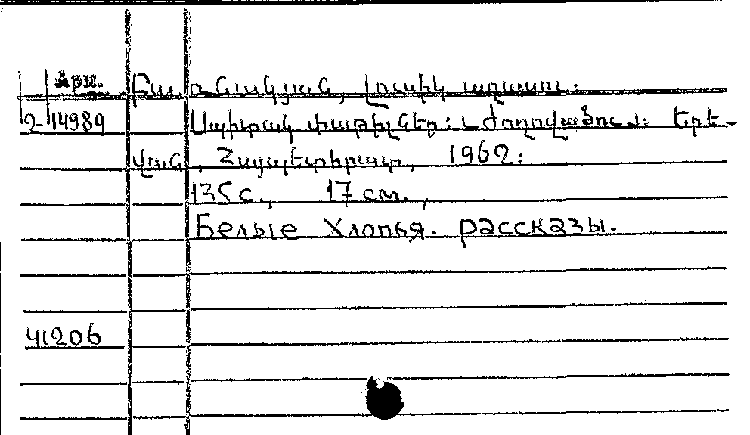 2 14989
Սպիտակ փաթիլներ: Ժողովածու: Երե-
վան, Հայպետհրատ, 1962:
135 с., 17 см.,
Белые Хлопья. рассказы.
41206